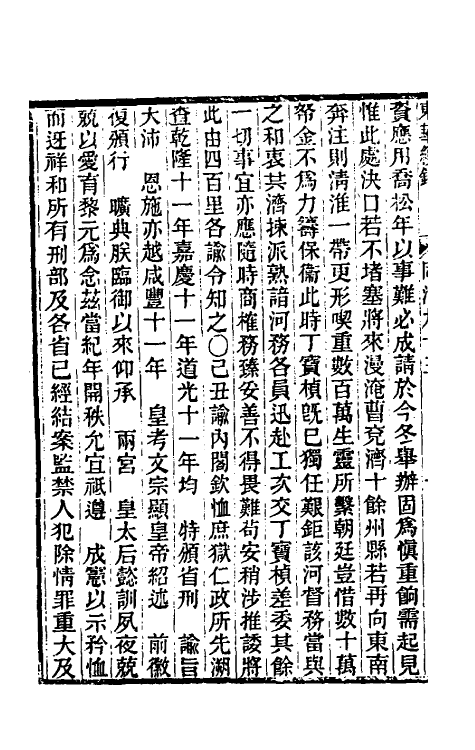 資應用喬松年以事難必成請於今冬舉辦固爲愼重餉需起見
惟此處決口若不堵塞將來漫淹曹兗濟十餘州縣若再向東南
奔注則淸淮一帶更形喫重數百萬生靈所繫朝廷豈惜數十萬
帑金不爲力籌保衞此時丁寶楨旣已獨任艱鉅該河督務當與
之和衷共濟揀派熟諳河務各員迅赴工次交丁寶楨差委其餘
一切事宜亦應隨時商榷務臻妥善不得畏難苟安稍涉推諉將
此由四百里各諭令知之〇己丑諭內閣欽恤庶獄仁政所先溯
查乾隆十一年嘉慶十一年道光十一年均 特頒省刑 諭旨
大沛 恩施亦越咸豐十一年 皇考文宗顯皇帝紹述 前徽
復頒行 曠典朕臨御以來仰承 兩宮 皇太后懿訓夙夜兢
兢以愛育黎元爲念茲當紀年開秩允宜祇遵 成憲以示矜恤
而迓祥和所有刑部及各省已經結案監禁人犯除情罪重大及